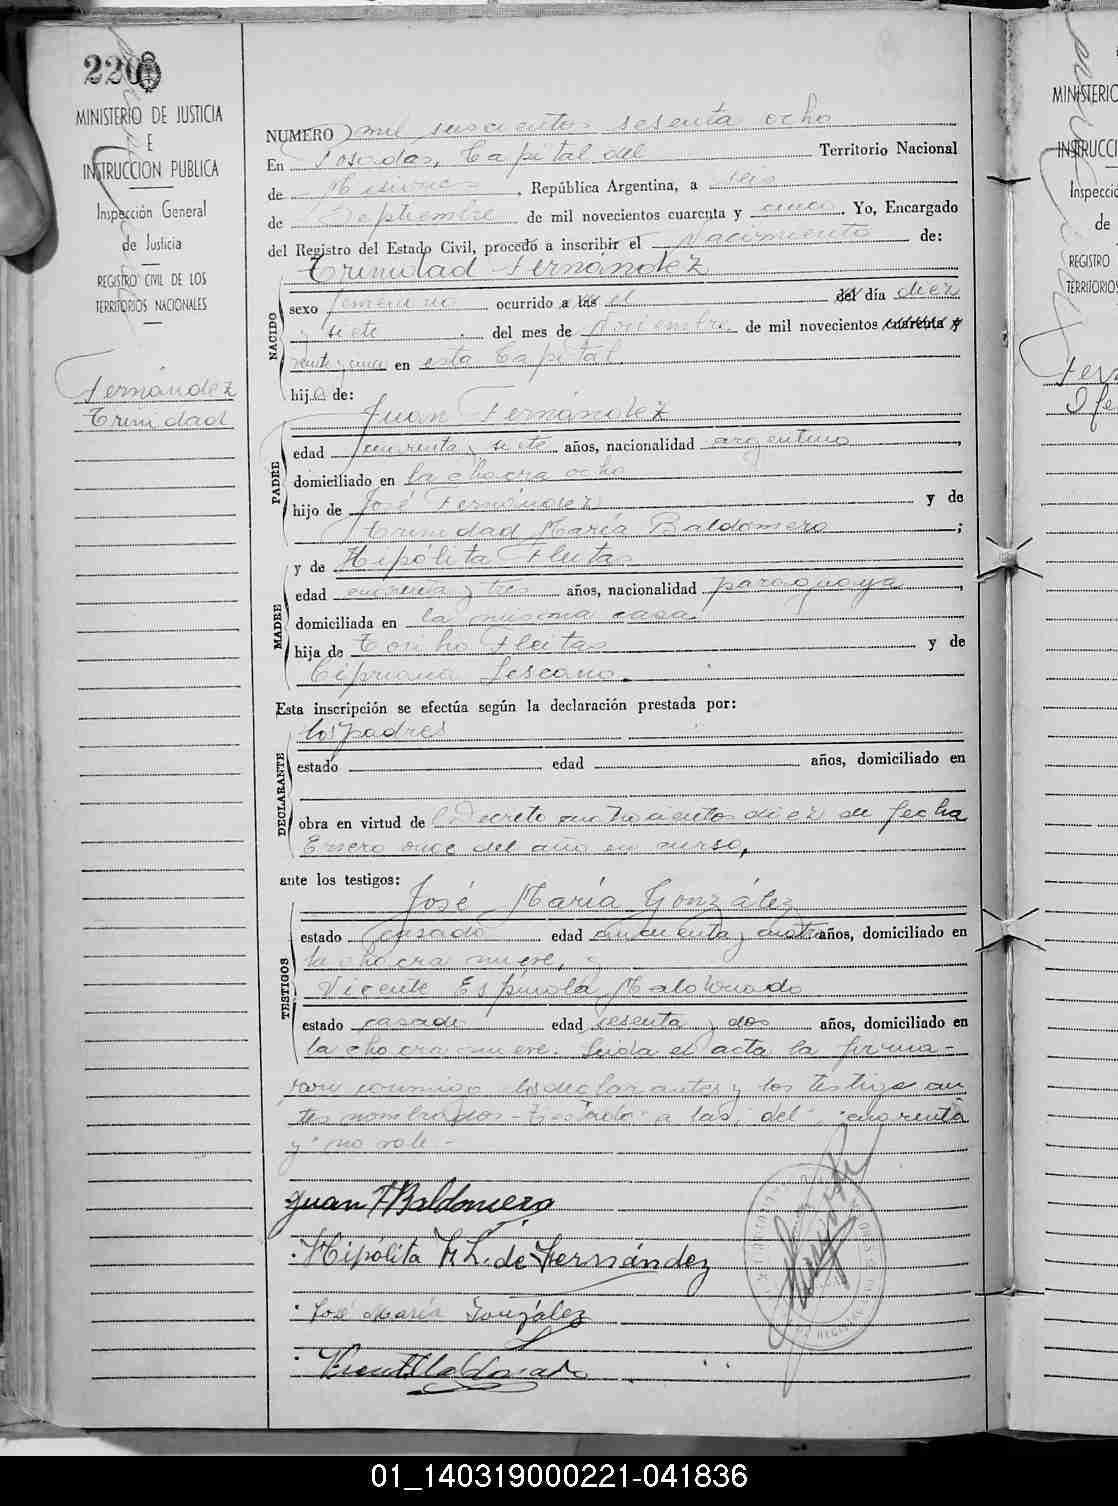 220
MINISTERIO DE JUSTICIA
E
INSTRUCCION PUBLICA
Inspección General
de Justicia
REGISTRO CIVIL DE LOS
TERRITORIOS NACIONALES
Fernández
Trinidad
NUMERO mil seiscientos sesenta ocho
En Posadas, Capital del Territorio Nacional
de Misiones, República Argentina, a seis
de Septiembre de mil novecientos cuarenta y cinco. Yo, Encargado
del Registro del Estado Civil, procedo a inscribir el Nacimiento de:
Trinidad Fernández
NACIDO
sexo femenino ocurrido a las el del día diez
y siete del mes de Noviembre de mil novecientos cuarenta y
veinte y cinco en esta Capital
hija de:
Juan Fernández
PADRE
edad cuarenta y siete años, nacionalidad argentino,
domiciliado en la chacra ocho
hijo de José Fernández y de
Trinidad María Baldomero;
y de Hipólita Fleitas
MADRE
edad cuarenta y tres años, nacionalidad paraguaya,
domiciliada en la misma casa.
hija de Fleitas y de
Cipriana Lescano.
Esta inscripción se efectúa según la declaración prestada por:
los padres
DECLARANTE
estado edad años, domiciliado en
obra en virtud del Decreto cuatrocientos diez de fecha
Enero once del año en curso,
ante los testigos:
José María González
TESTIGOS
estado casado edad cincuenta y cuatro años, domiciliado en
la chacra nueve, y
Vicente Espínola Maldonado
estado casado edad sesenta y dos años, domiciliado en
la chacra nueve. Leída el acta la firma-
ron conmigo los declarantes y los testigos an
tes nombrados - Testado "a las" "del" "cuarenta
y" no vale -
Juan F Baldomero
Hipólita F. L. de Fernández
José María González
Maldonado
MINISTERIO
INSTRUCCI
Inspecció
de
REGISTRO
TERRITORIOS
01_140319000221-041836